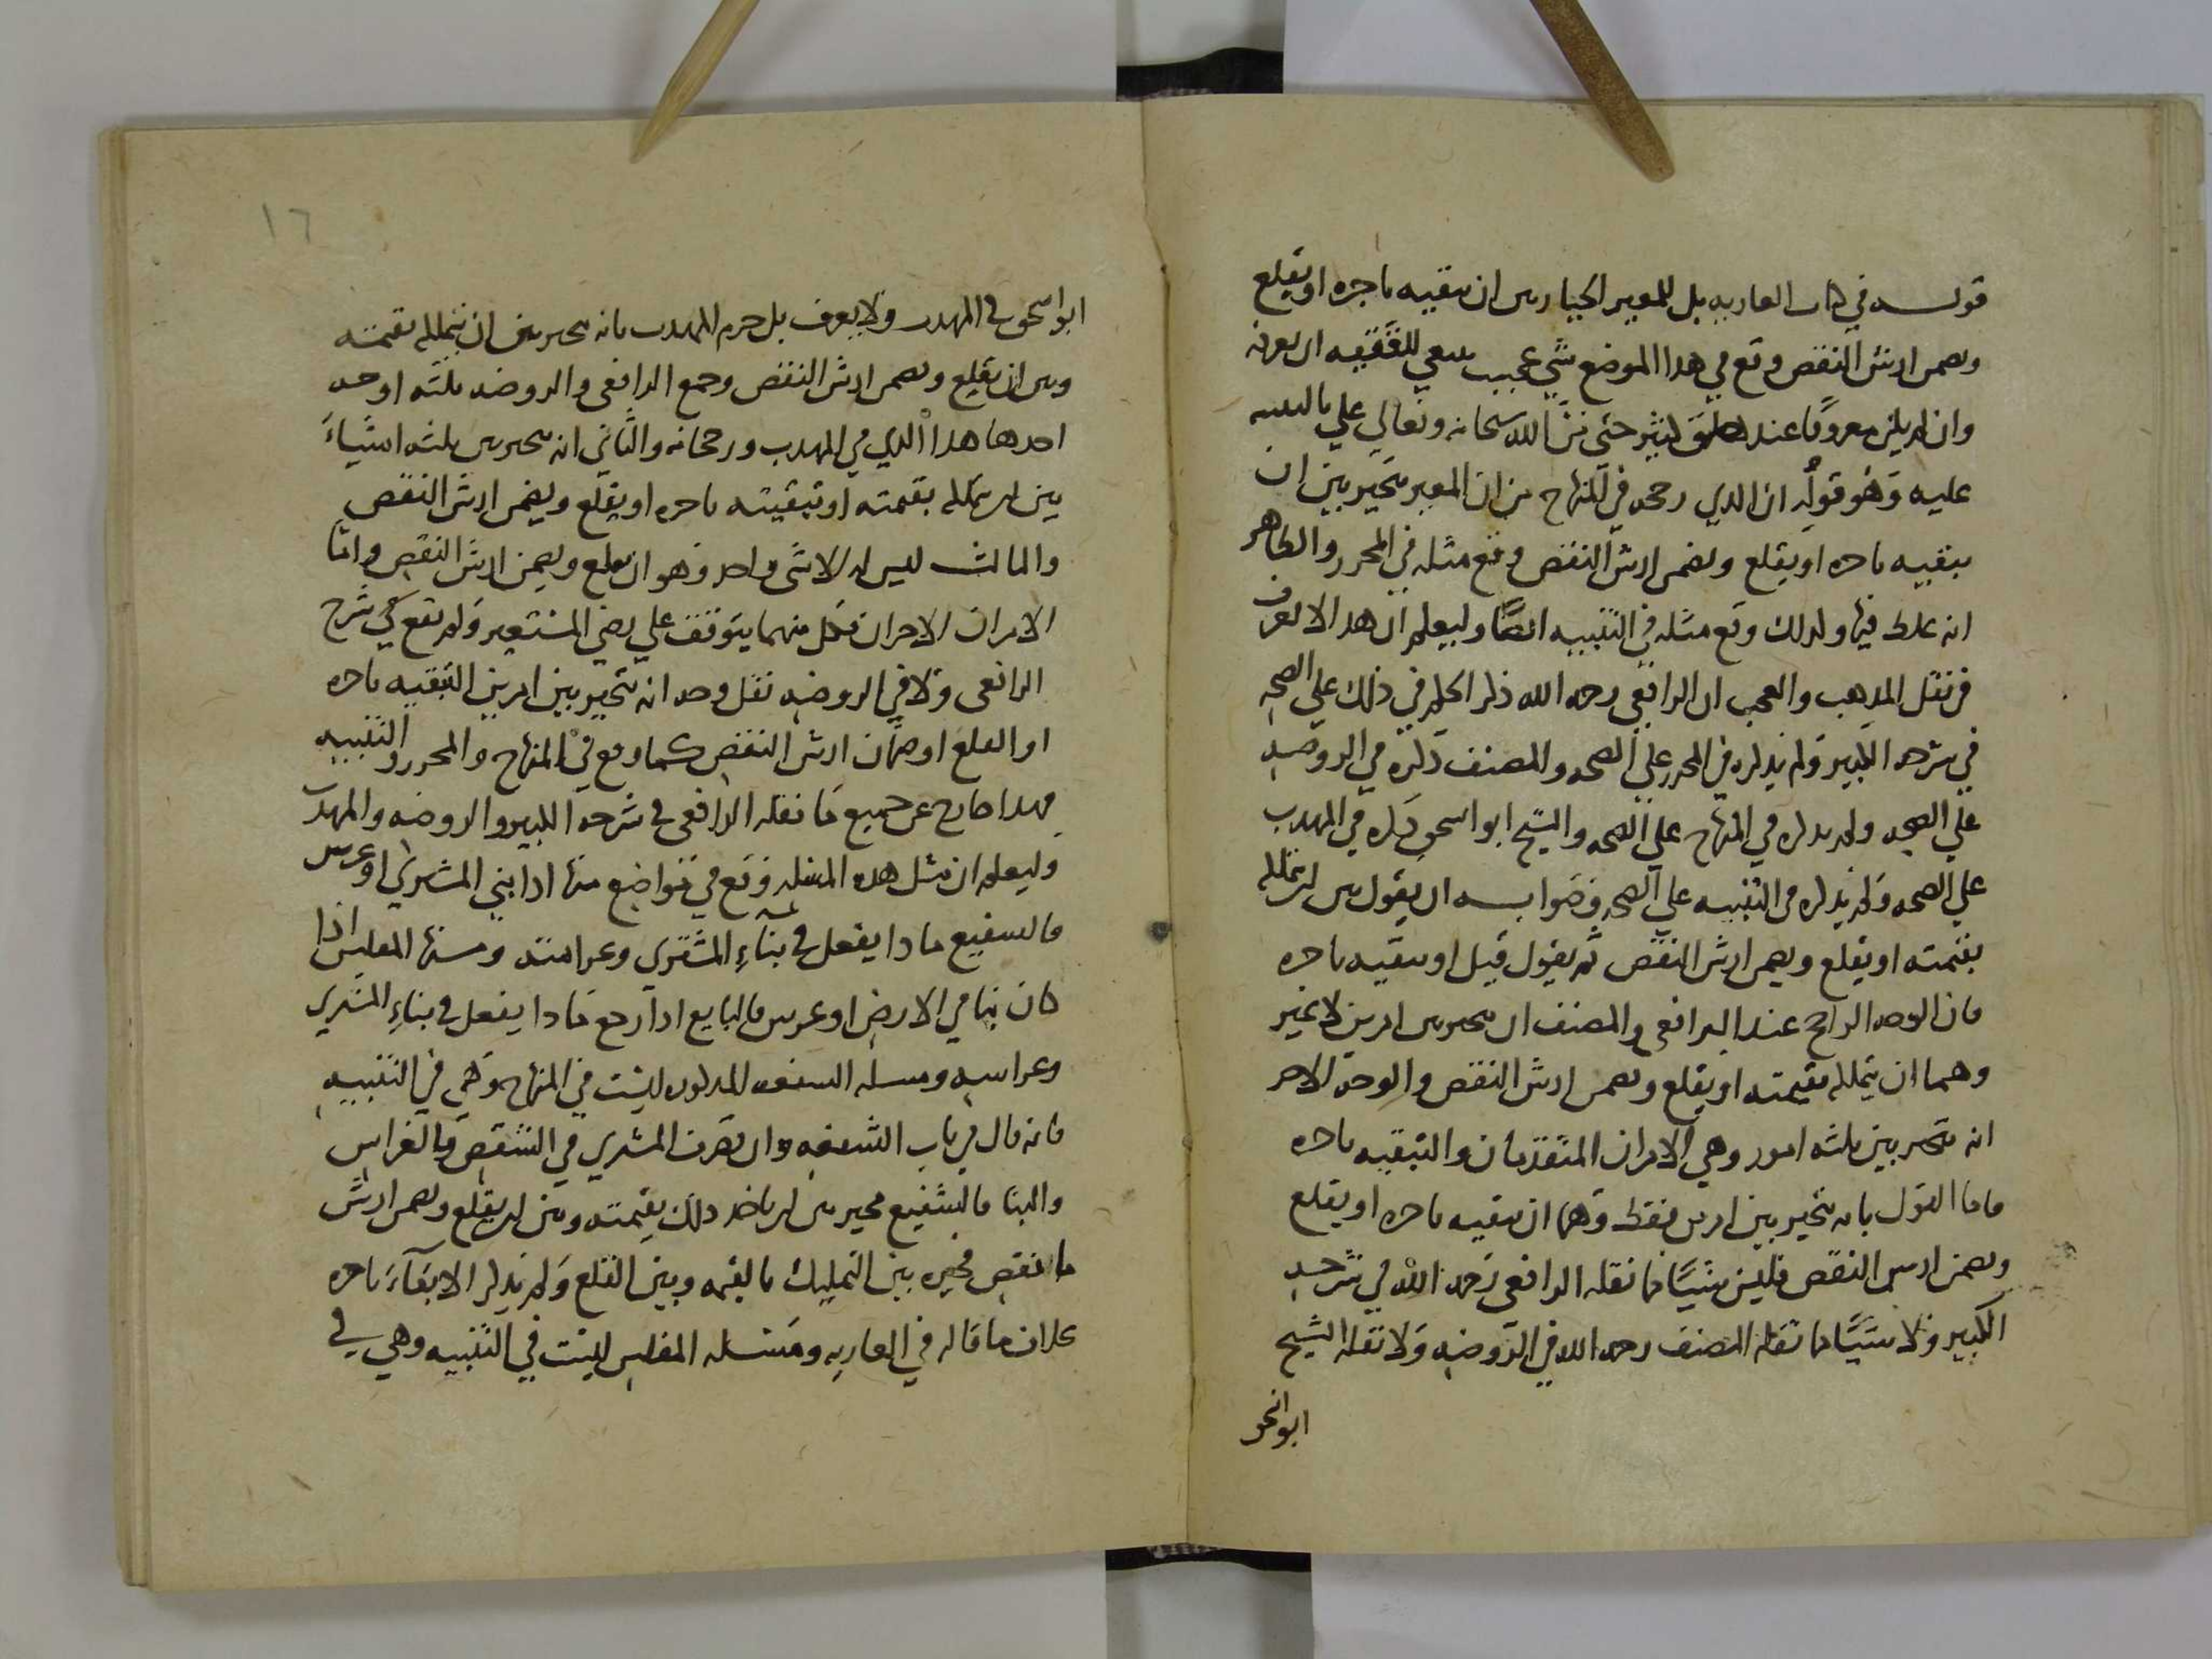 قوله في كتاب العاريه بل للمعير الخيار بين ان يبقيه باجره او يقلع
ويضمن ارش النقص وقع في هذا الموضع شي عجيب ينبغي للفقيه ان يعرفه
وان لم يكن معروفا عند خلق كثير حتى من الله سبحانه وتعالى علي بالتنبيه
عليه وهو قوله ان الذي رجحه في المنهاج من ان المعير يتخير بين ان
يبقيه باجره او يقلع ويضمن ارش النقص وقع مثله في المحرر والظاهر
انه غلط فيها ولذلك وقع مثله في التنبيه ايضا وليعلم ان هذا لا يعرف
في نقل المذهب والعجب ان الرافعي رحمه الله ذكر الحكم في ذلك على الصحه
في شرحه الكبير ولم يذكره في المحرر على الصحه والمصنف ذكره في الروضه
على الصحه ولم يذكره في المنهاج على الصحه والشيخ ابو اسحق ذكره في المهذب
على الصحه ولم يذكره في التنبيه على الصحه وصوابه ان يقول بين ان يتملك
بقيمته او يقلع ويضمن ارش النقص ثم يقول قيل او يبقيه باجره
فان الوجه الراجح عند الرافعي والمصنف ان يتخير بين امرين لا غير
وهما ان يتملك بقيمته او يقلع ويضمن ارش النقص والوجه الاخر
انه يتخير بين ثلثه امور وهي الامران المتقدمان والتبقيه باجره
فاما القول بانه يتخير بين امرين فقط وهما ان يبقيه باجره او يقلع
ويضمن ارش النقص فليس شيا مما نقله الرافعي رحمه الله في شرحه
الكبير ولا شيا مما نقله المصنف رحمه الله في الروضه ولا نقله الشيخ
ابو اسحق
١٦
ابو اسحق في المهذب ولا يعرف بل جزم المهذب بانه يتخير بين ان يتملك بقيمته
وبين ان يقلع ويضمن ارش النقص وجمع الرافعي والروضه ثلثه اوجه
احدها هذا الذي في المهذب ورجحاه والثاني انه يتخير بين ثلثه اشياء
بين ان يتملك بقيمته او تبقيته باجره او يقلع ويضمن ارش النقص
والثالث ليس له الا شي واحد وهو ان يقلع ويضمن ارش النقص واما
الامران الاخران فكل منهما يتوقف على رضي المستعير ولم يقع في شرح
الرافعي ولا في الروضه نقل وجه انه يتخير بين امرين التبقيه باجره
او القلع او ضمان ارش النقص كما وقع في المنهاج والمحرر والتنبيه
فهذا خارج عن جميع ما نقله الرافعي في شرحه الكبير والروضه والمهذب
وليعلم ان مثل هذه المسله وقع في مواضع منها اذا بني المشتري او غرس
فالشفيع ماذا يفعل في بناء المشتري وغراسته ومنها المفلس اذا
كان بنا في الارض او غرس فالبايع اذا رجع ماذا يفعل في بناء المشتري
وغراسه ومسله الشفعه المذكوره ليست في المنهاج وهي في التنبيه
فانه قال في باب الشفعه وان تصرف المشتري في الشقص بالغراس
والبنا فالشفيع مخير بين ان ياخذ ذلك بقيمته وبين ان يقلع ويضمن ارش
ما نقص فخيره بين التمليك بالقيمه وبين القلع ولم يذكر الابقاء باجره
خلاف ما قاله في العاريه ومسله المفلس ليست في التنبيه وهي في